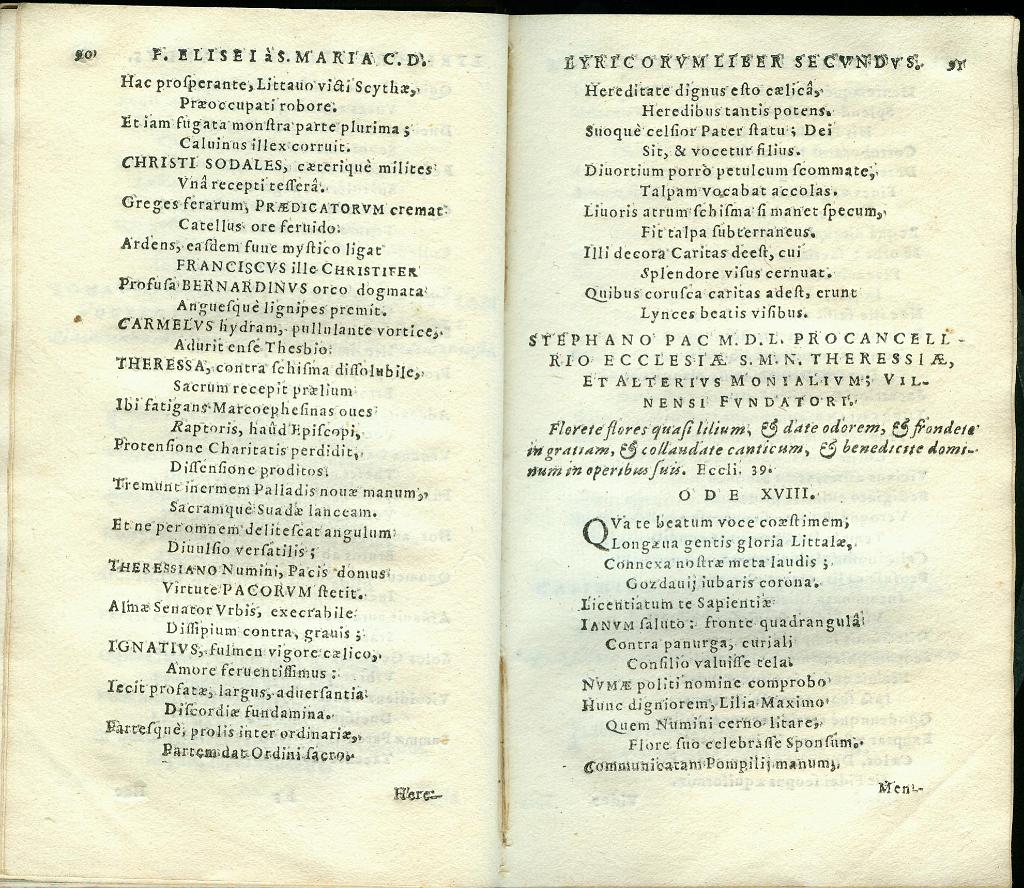 90 F. ELISEI à S. MARIA C. D.
Hac proſperante, Littauo victi Scythæ,
Præoccupati robore.
Et iam fugata monſtra parte plurima;
Caluinus illex corruit.
CHRISTI SODALES, cæteriquè milites
Vnâ recepti teſſerâ.
Greges ferarum, PRÆDICATORVM cremat
Catellus ore feruido.
Ardens, eaſdem fune myſtico ligat
FRANCISCVS ille CHRISTIFER
Profuſa BERNARDINVS orco dogmata
Angueſquè lignipes premit.
CARMELVS hydram, pullulante vortice,
Adurit enſe Thesbio.
THERESSA, contra ſchiſma diſſolubile,
Sacrum recepit prælium
Ibi fatigans Marcoepheſinas oues
Raptoris, haûd Epiſcopi,
Protenſione Charitatis perdidit,
Diſſenſione proditos.
Tremunt inermem Palladis nouæ manum,
Sacramquè Suadæ lanceam.
Et ne per omnem deliteſcat angulum
Diuulſio verſatilis;
THERESSIANO Numini, Pacis domus
Virtute PACORVM ſtetit.
Almæ Senator Vrbis, execrabile
Diſſipium contra, grauis;
IGNATIVS, fulmen vigore cælico,
Amore feruentiſſimus:
Iecit profatæ, largus, aduerſantia
Diſcordiæ fundamina.
Parteſquè, prolis inter ordinariæ,
Partem dat Ordini ſacro.
Here-
LYRICORVM LIBER SECVNDVS. 91
Hereditate dignus eſto cælicâ,
Heredibus tantis potens.
Suoquè celſior Pater ſtatu; Dei
Sit, & vocetur filius.
Diuortium porrò petulcum ſcommate,
Talpam vocabat accolas.
Liuoris atrum ſchiſma ſi manet ſpecum,
Fit talpa ſubterraneus.
Illi decora Caritas deeſt, cui
Splendore viſus cernuat.
Quibus coruſca caritas adeſt, erunt
Lynces beatis viſibus.
STEPHANO PAC M. D. L. PROCANCELL-
RIO ECCLESIÆ S. M. N. THERESSIÆ,
ET ALTERIVS MONIALIVM; VIL-
NENSI FVNDATORI.
Florete flores quaſi lilium, & date odorem, & frondete
in gratiam, & collaudate canticum, & benedicite domi-
num in operibus ſuis. Eccli. 39.
ODE XVIII.
QVa te beatum voce coæſtimem,
Longæua gentis gloria Littalæ,
Connexa noſtræ meta laudis;
Gozdauij iubaris corona.
Licentiatum te Sapientiæ
IANVM ſaluto: fronte quadrangulâ
Contra panurga, curiali
Conſilio valuiſſe tela.
NVMÆ politi nomine comprobo
Hunc digniorem, Lilia Maximo
Quem Numini cerno litare,
Flore ſuo celebràſſe Sponſum.
Communicatam Pompilij manum,
Men-